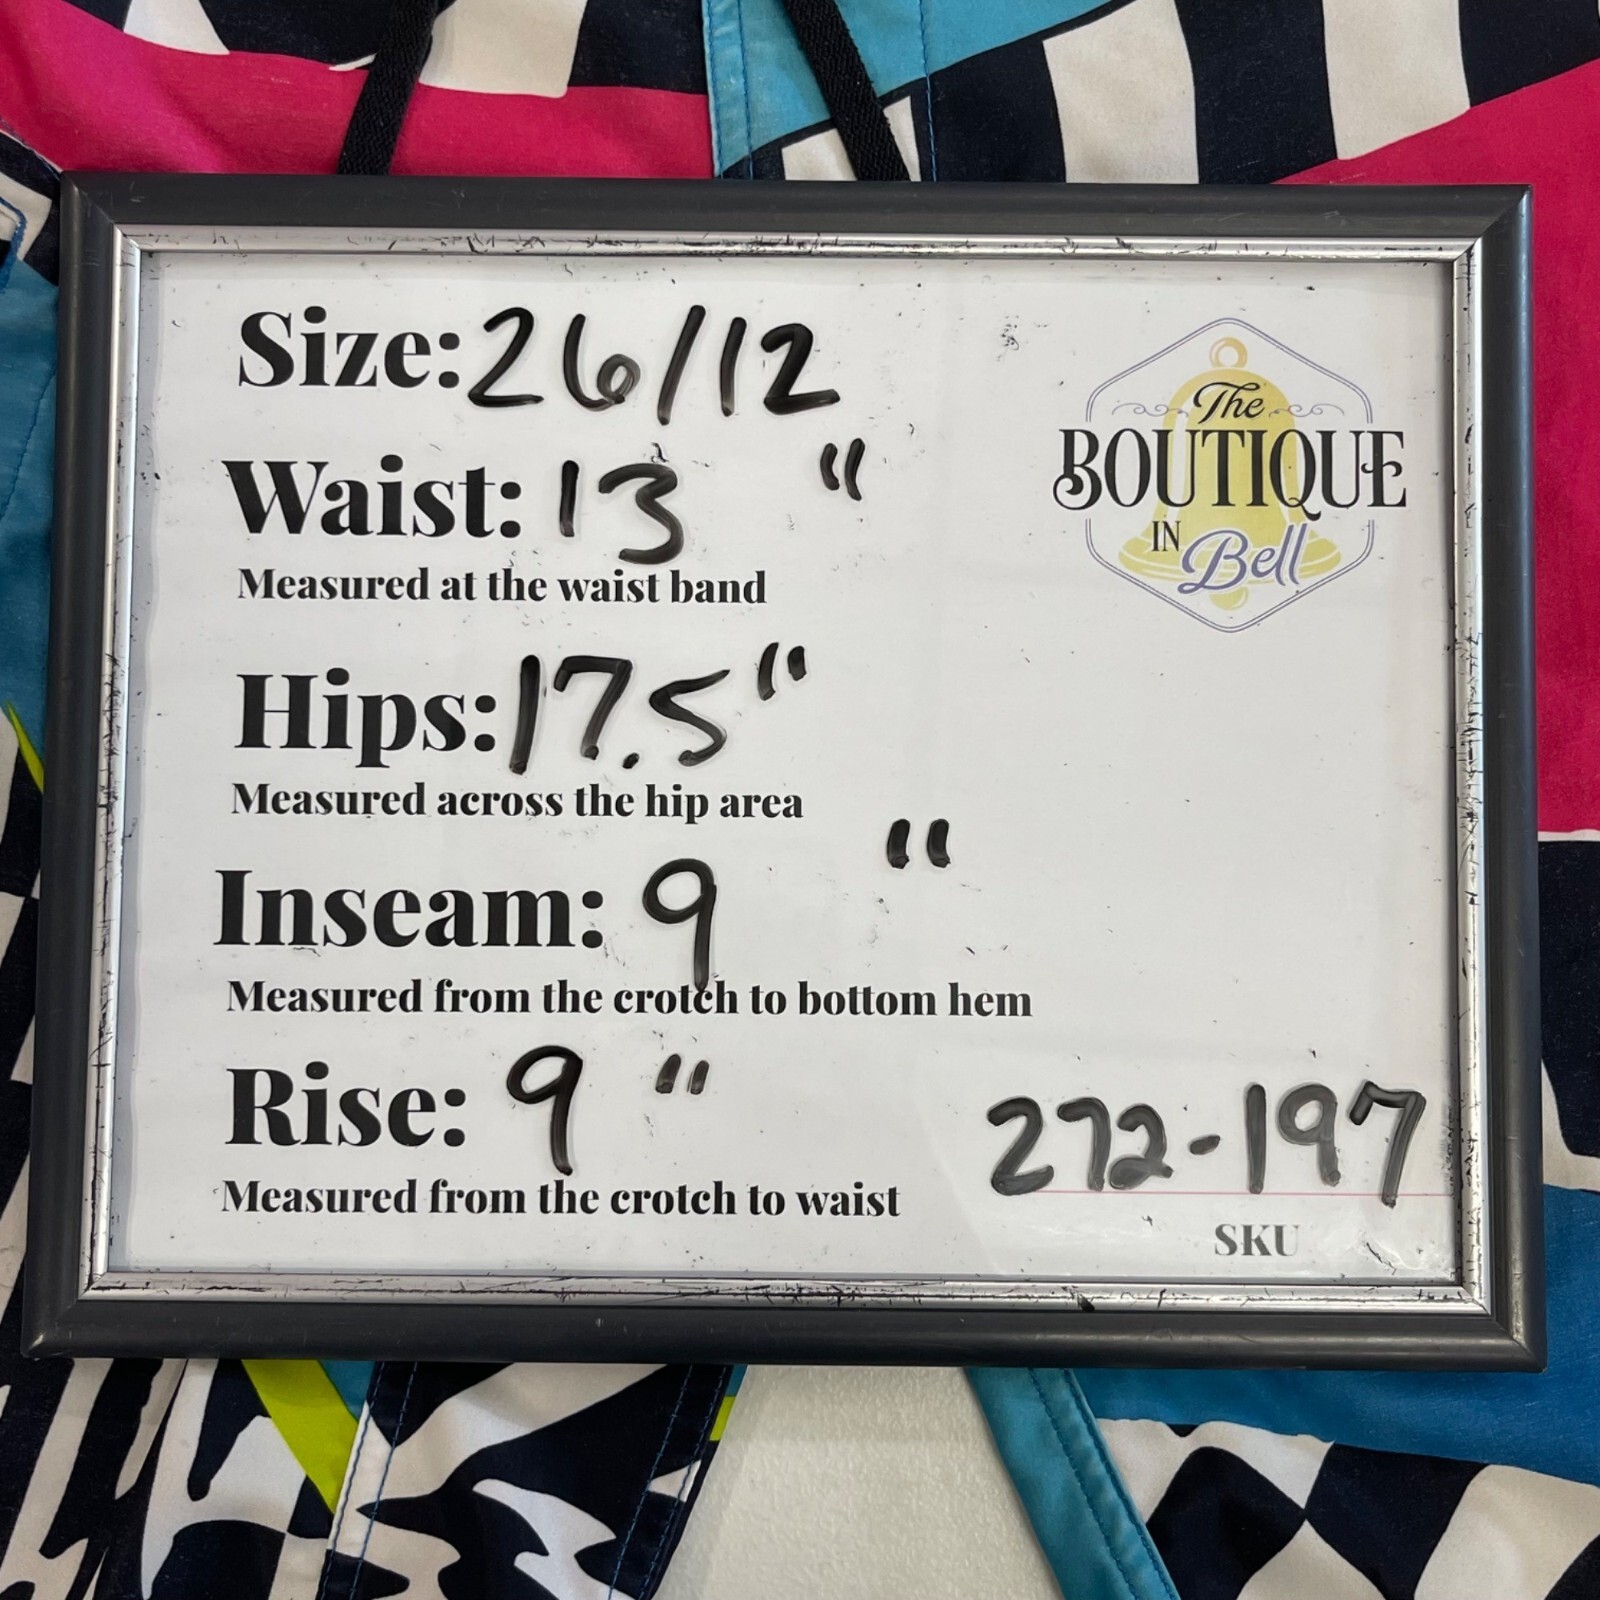 Size: 26/12
Waist: 13 "
Measured at the waist band
Hips: 17.5"
Measured across the hip area
Inseam: 9 "
Measured from the crotch to bottom hem
Rise: 9 "
Measured from the crotch to waist
The
BOUTIQUE
IN
Bell
272-197
SKU